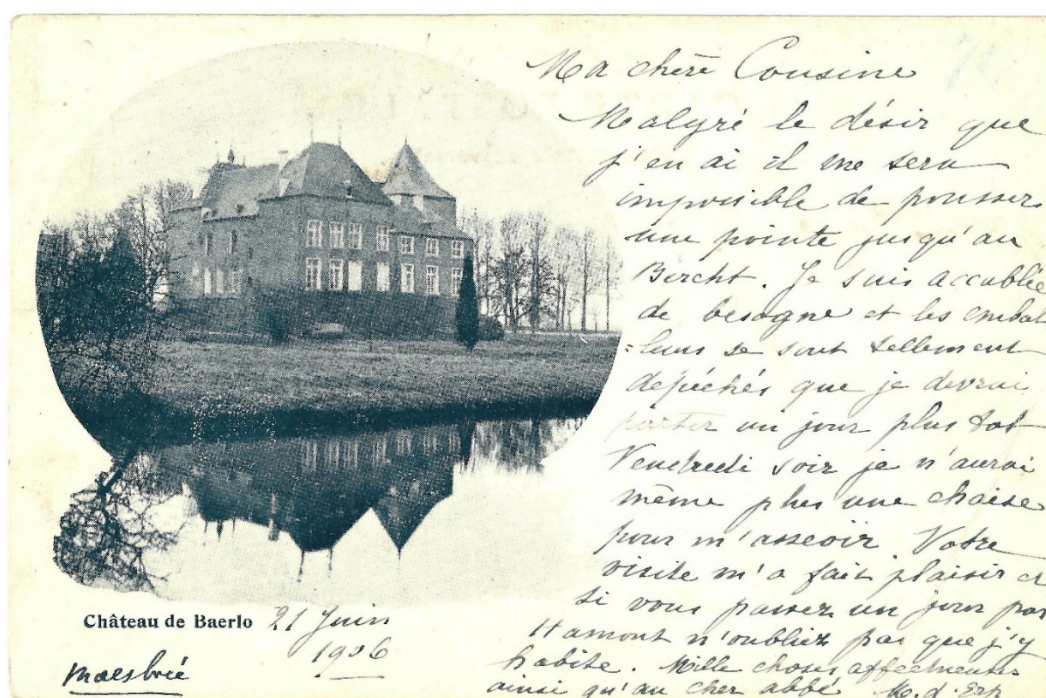 Ma chère Cousine
Malgré le désir que
j'en ai il me sera
impossible de pousser
une pointe jusqu'au
Bercht. Je suis accablée
de besogne et les embal
=leurs se sont tellement
depéchés que je devrai
partir un jour plus tot
Vendredi soir je n'aurai
même plus une chaise
pour m'asseoir. Votre
visite m'a fait plaisir et
si vous passez un jour par
Hamont n'oubliez pas que j'y
habite. Mille choses affectueuses
ainsi qu'au cher abbé. M. d'
Château de Baerlo
21 Juin
1906